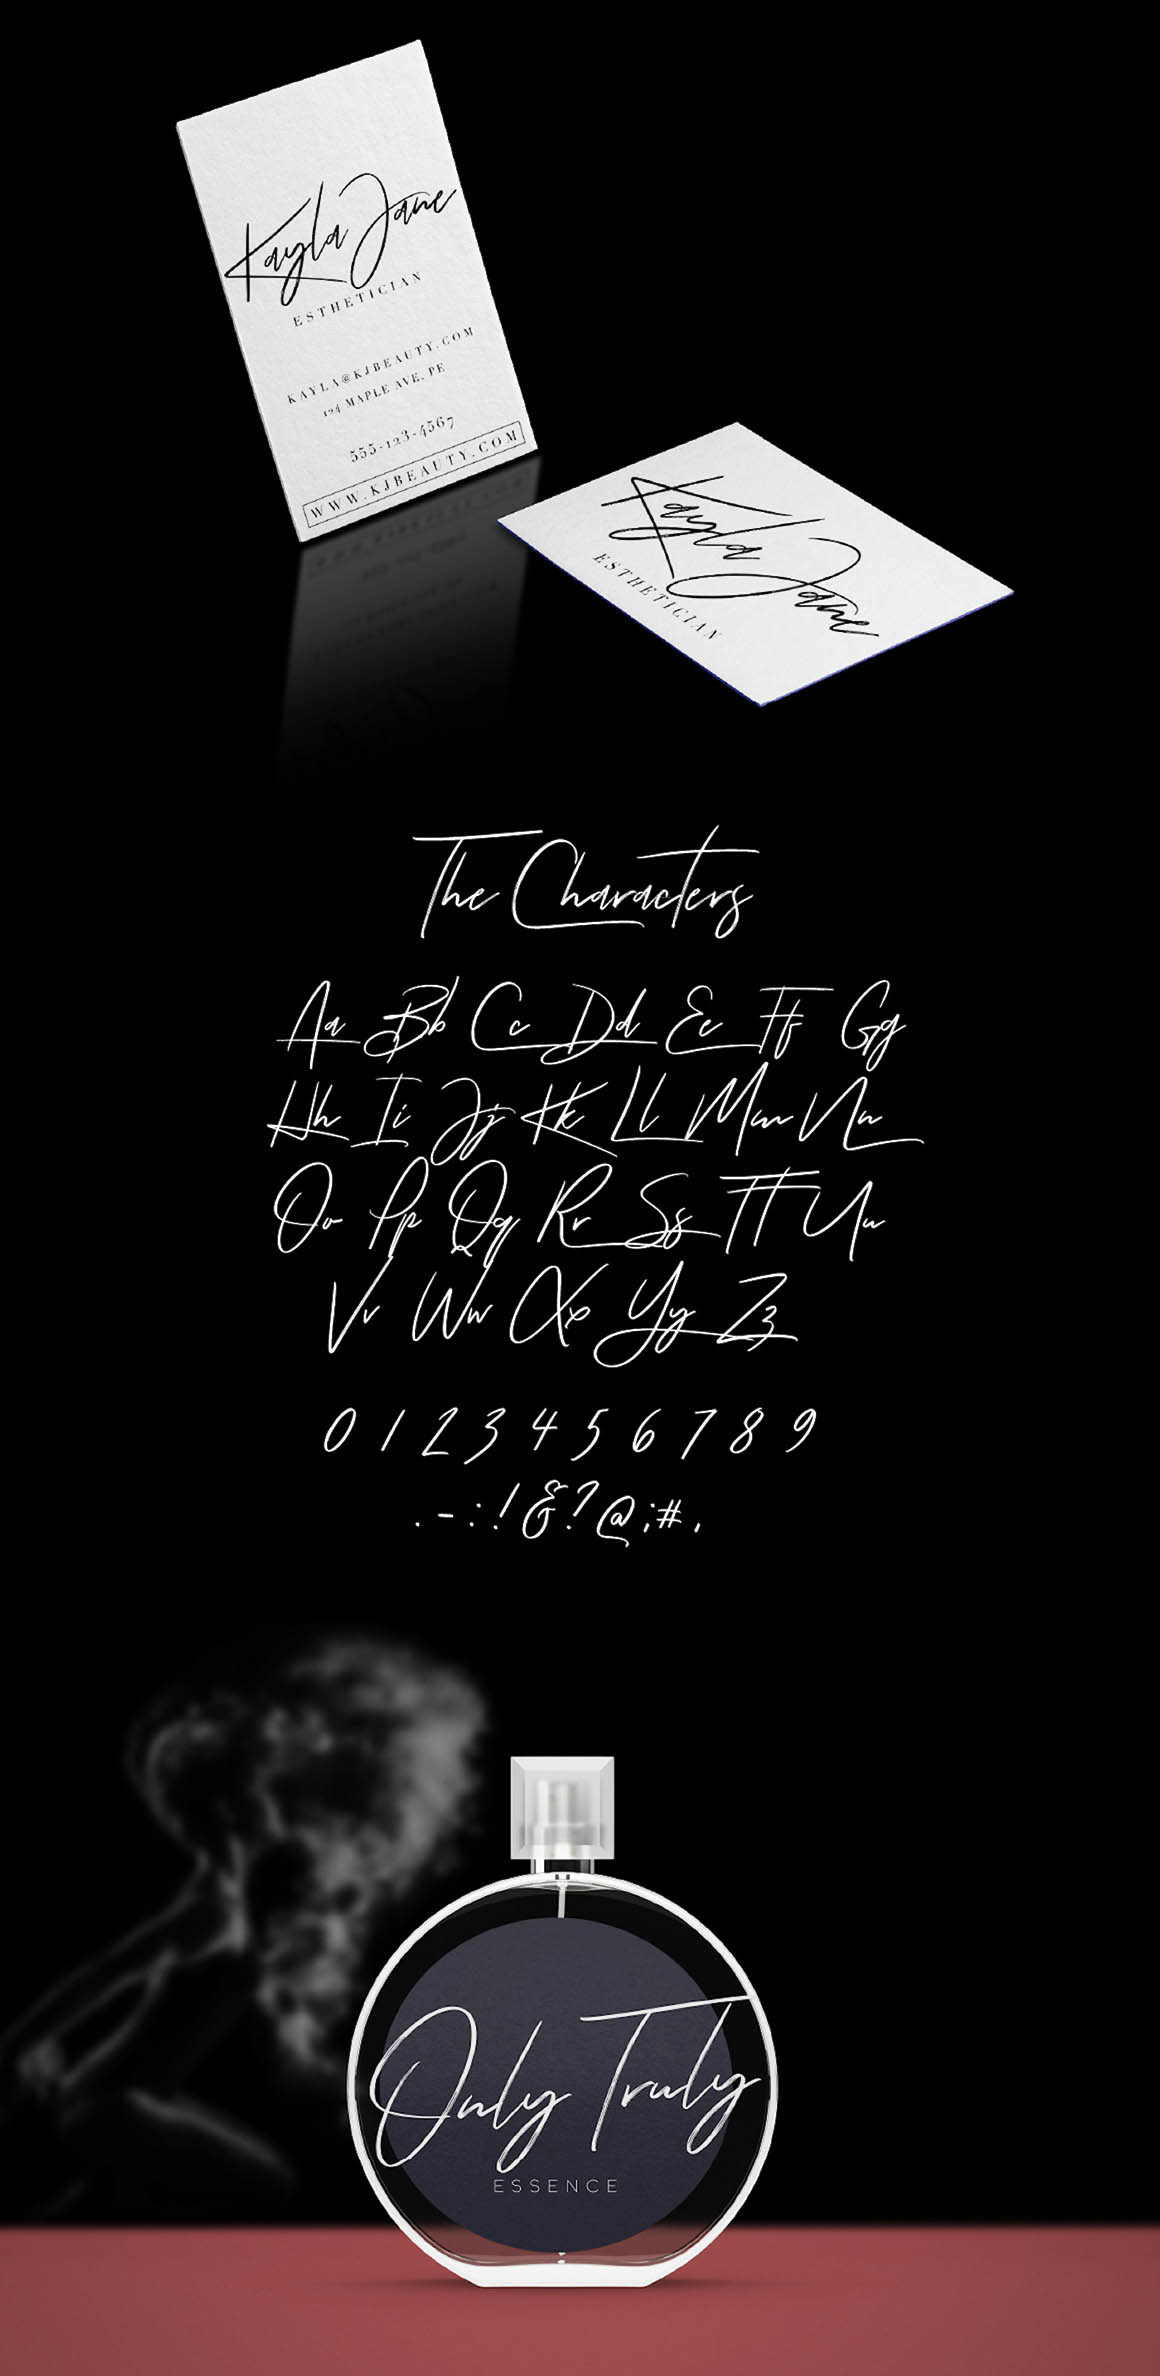 Kayla Jane
ESTHETICIAN
KAYLA@KJBEAUTY.COM
124 MAPLE AVE, PE
555-123-4567
WWW.KJBEAUTY.COM
Kayla Jane
ESTHETICIAN
The Characters
Aa Bb Cc Dd Ee Ff Gg
Hh Ii Jj Kk Ll Mm Nn
Oo Pp Qq Rr Ss Tt Uu
Vv Ww Xx Yy Zz
0 1 2 3 4 5 6 7 8 9
. - : ! & ? @ ; # ,
Only Truly
ESSENCE